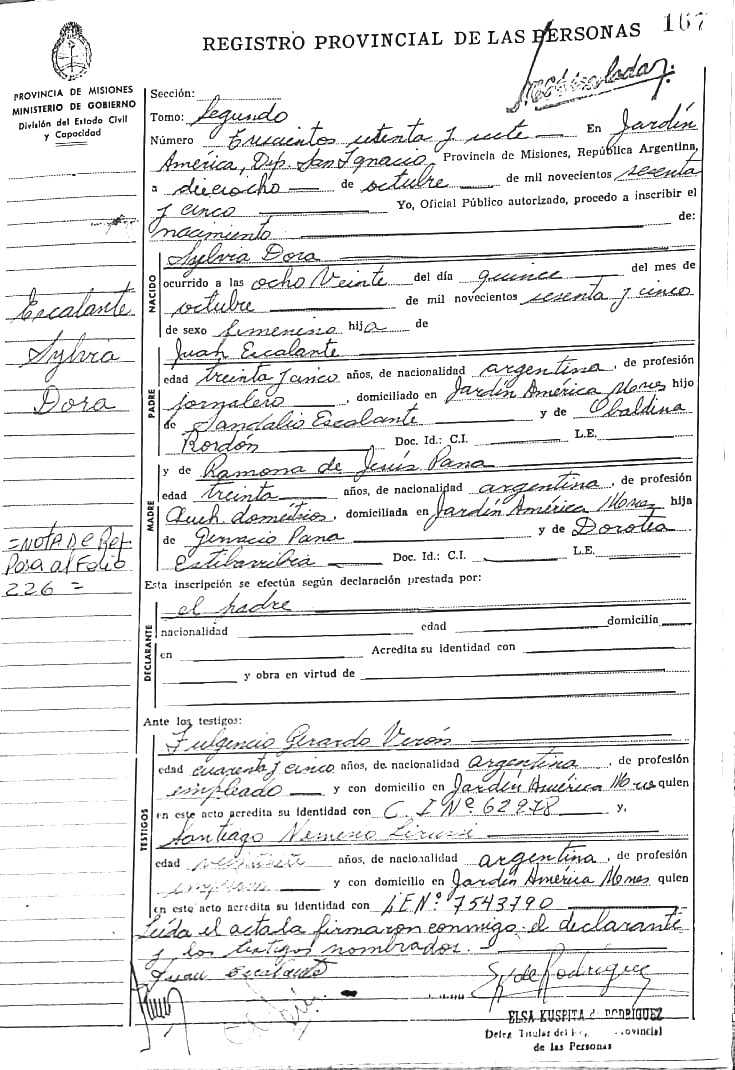 167
REGISTRO PROVINCIAL DE LAS PERSONAS
PROVINCIA DE MISIONES
MINISTERIO DE GOBIERNO
División del Estado Civil
y Capacidad
Sección:
Tomo: Segundo
Número Trescientos setenta y siete En Jardín
América, Dep. San Ignacio, Provincia de Misiones, República Argentina,
a dieciocho de octubre de mil novecientos sesenta
y cinco Yo, Oficial Público autorizado, procedo a inscribir el
nacimiento de:
NACIDO
Sylvia Dora
ocurrido a las ocho Veinte del día quince del mes de
octubre de mil novecientos sesenta y cinco
de sexo femenino hija de
PADRE
Juan Escalante
edad treinta y cinco años, de nacionalidad argentina, de profesión
jornalero, domiciliado en Jardín América Mnes hijo
de Sandalio Escalante y de Obaldina
Rordón Doc. Id.: C.I. L.E.
MADRE
y de Ramona de Jesús Pana
edad treinta años, de nacionalidad argentina, de profesión
Queh. domésticos, domiciliada en Jardín América Mnes hija
de Ignacio Pana y de Dorotea
Estibarribia Doc. Id.: C.I. L.E.
Esta inscripción se efectúa según declaración prestada por:
DECLARANTE
el padre
nacionalidad edad domicilia
en Acredita su identidad con
y obra en virtud de
Ante los testigos:
TESTIGOS
Fulgencio Gerardo Verón
edad cuarenta y cinco años, de nacionalidad argentina, de profesión
empleado y con domicilio en Jardín América Mnes quien
en este acto acredita su identidad con C I Nº 62978 y,
Santiago Nemesio
edad años, de nacionalidad argentina, de profesión
y con domicilio en Jardín América Mnes quien
en este acto acredita su identidad con L E Nº 7543790
Leída el acta la firmaron conmigo el declarante
y los testigos nombrados.
Juan Escalante
ELSA KUSPITA de RODRIGUEZ
Deleg. Titular del Provincial
de las Personas
Escalante
Sylvia
Dora
=NOTA De Ref
Posa al Folio
226 =